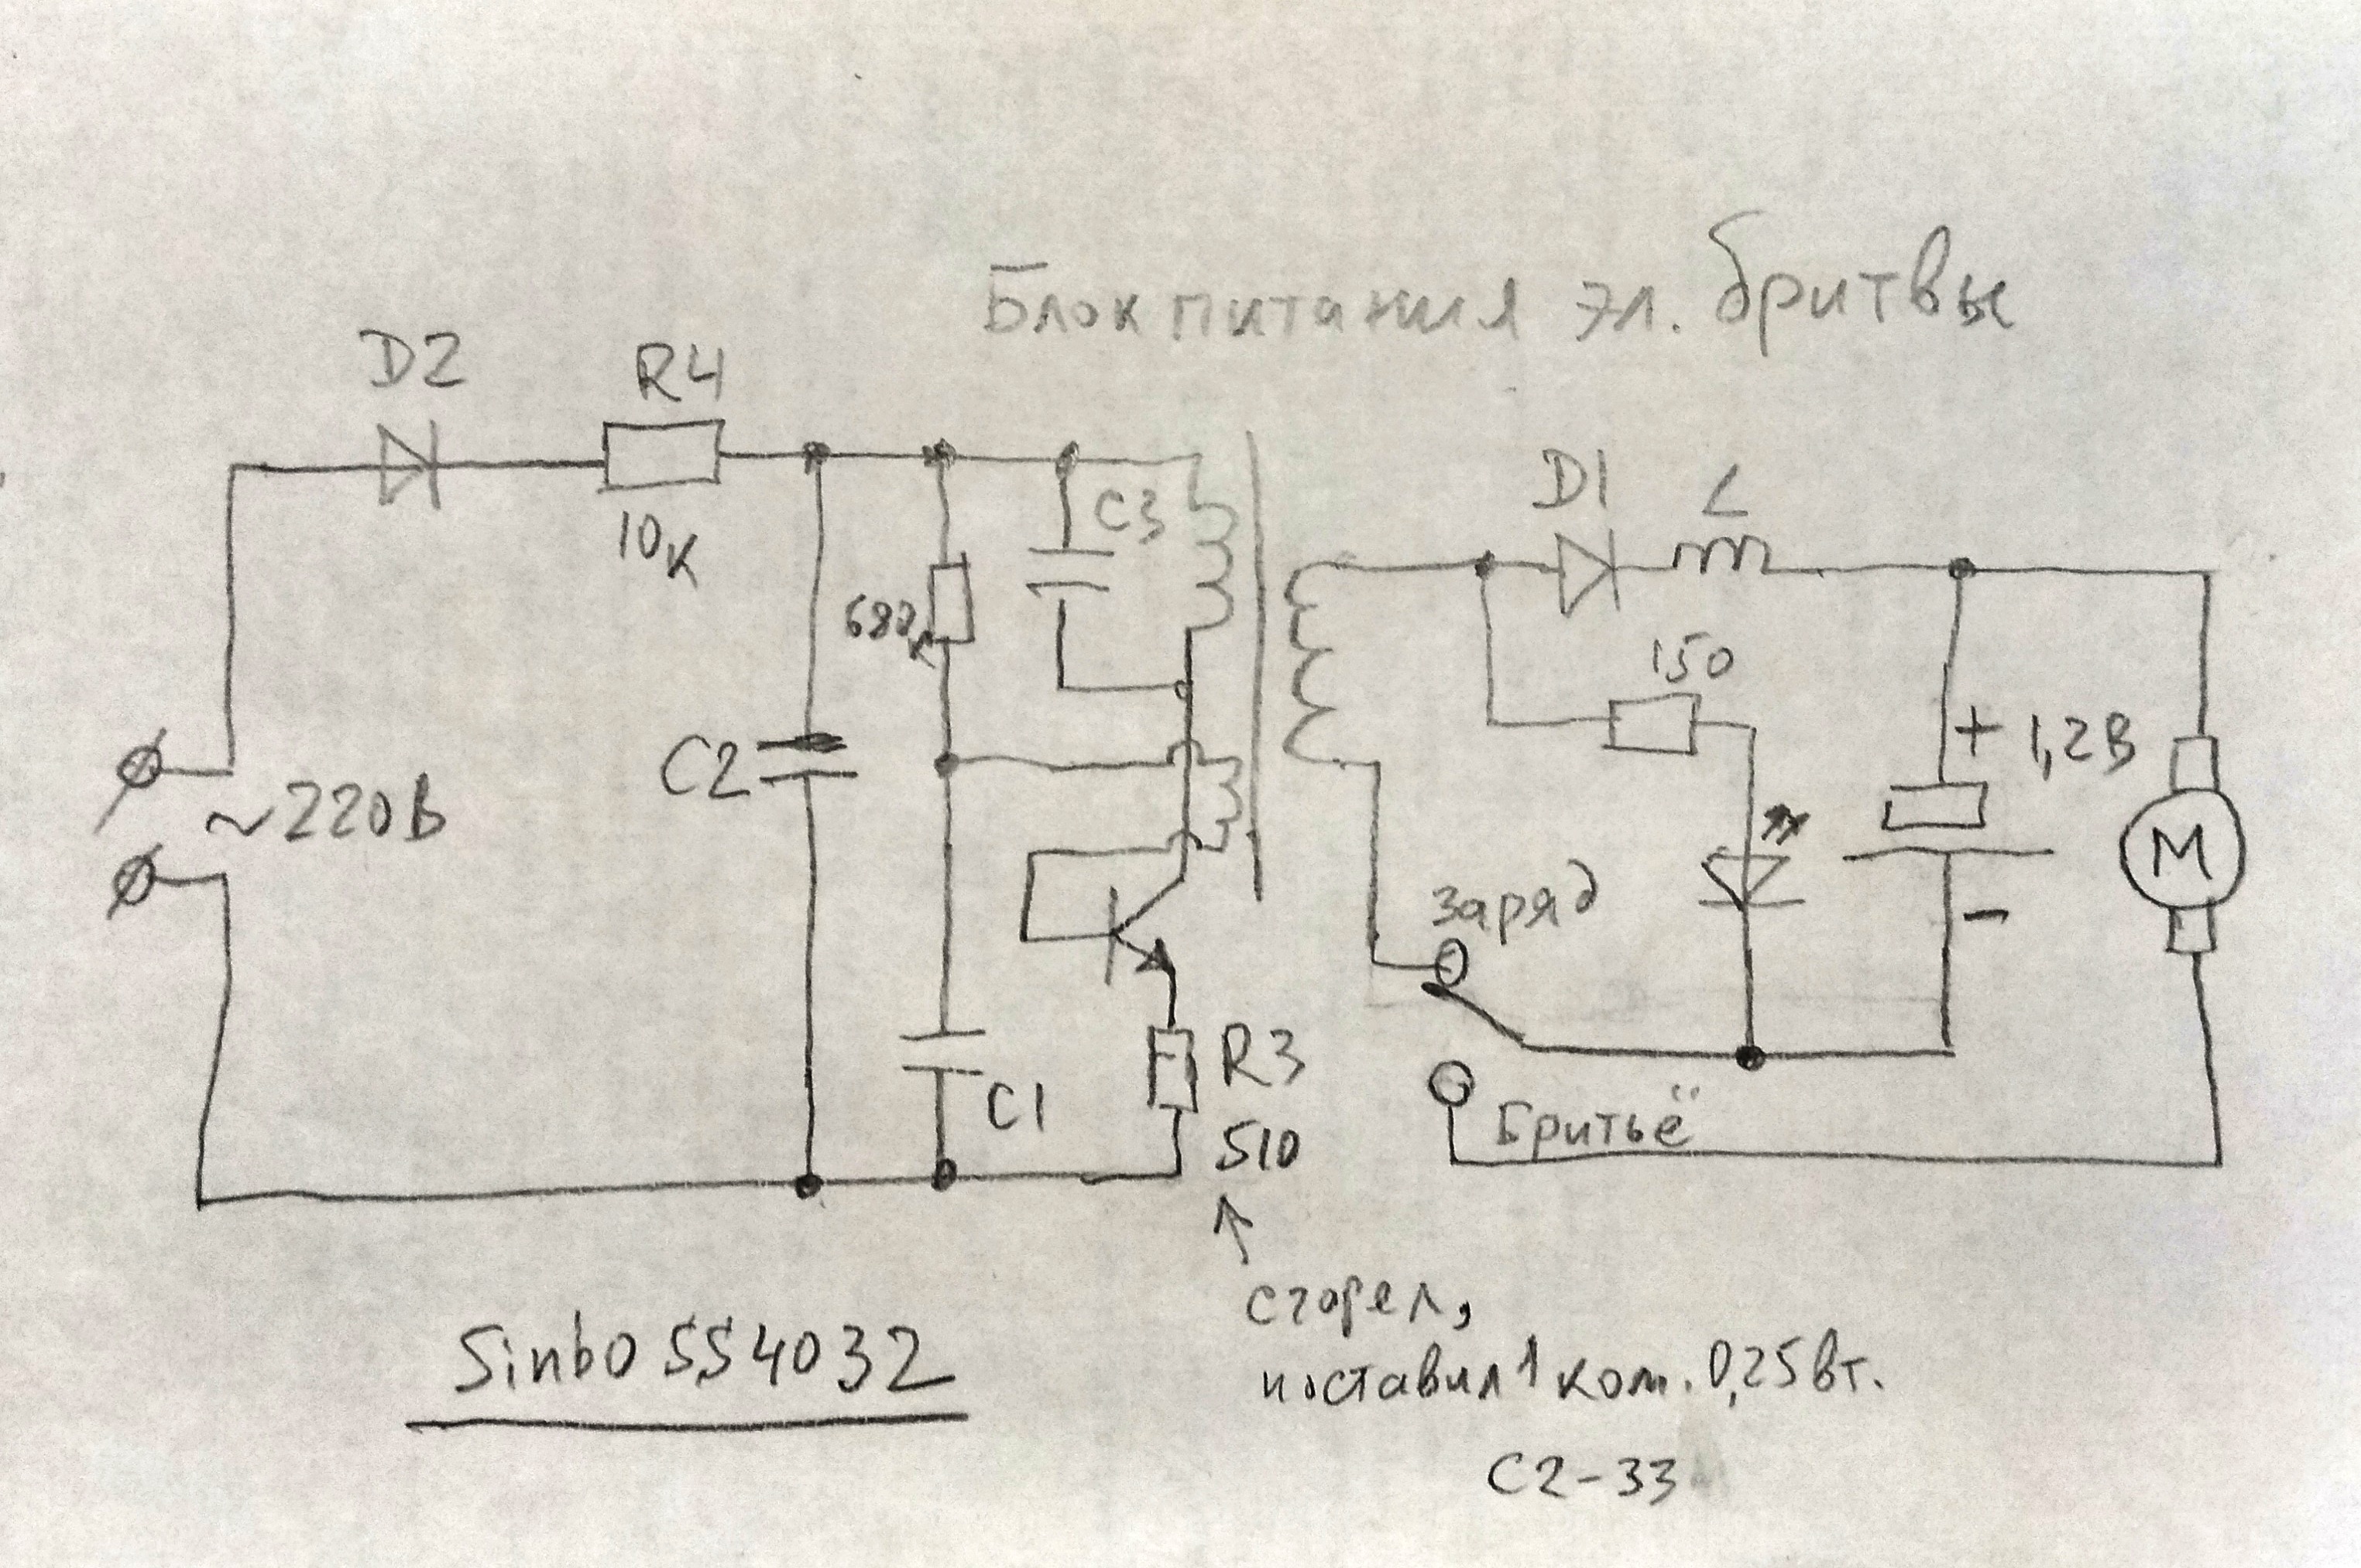 Блок питания эл. бритвы
D2
R4
10к
C3
D1
L
680к
150
C2
+ 1,2В
~220В
М
заряд
−
R3
C1
510
Бритьё
сгорел,
поставил 1 ком. 0,25вт.
Sinbo SS4032
С2-33